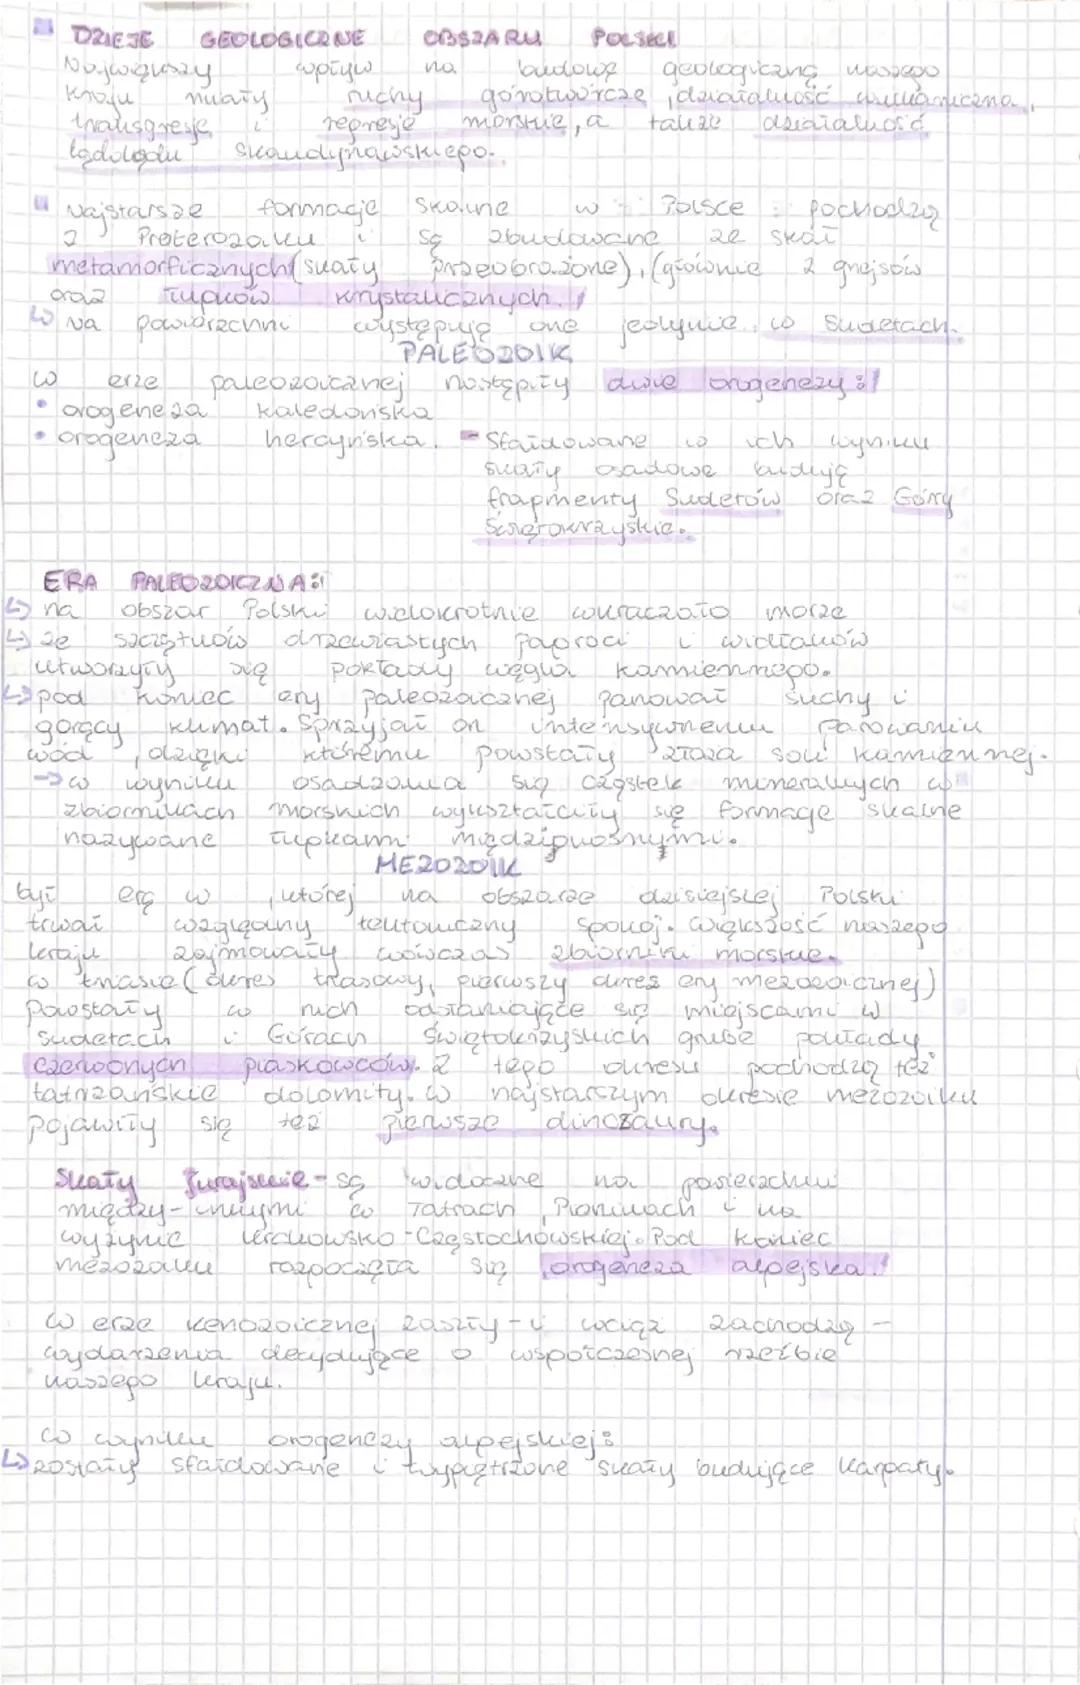 DZIEJE GEOLOGICZNE OBSZARU POLSKI
Największy wpływ na budowę geologiczną naszego
kraju miały ruchy górotwórcze, działalność wulkaniczna,
transgresje i regresje morskie, a także działalność
lądolodu skandynawskiego.
Najstarsze formacje skalne w Polsce pochodzą
z Proterozoiku i są zbudowane ze skał
metamorficznych (skały przeobrażone), (głównie z gnejsów
oraz łupków krystalicznych.
↳ Na powierzchni występują one jedynie w Sudetach.
PALEOZOIK
W erze paleozoicznej nastąpiły dwie orogenezy:
• orogeneza kaledońska
• orogeneza hercyńska. - Sfałdowane w ich wyniku
skały osadowe budują
fragmenty Sudetów oraz Góry
Świętokrzyskie.
ERA PALEOZOICZNA:
↳ na obszar Polski wielokrotnie wkraczało morze
↳ ze szczątków drzewiastych paproci i widłaków
utworzyły się pokłady węgla kamiennego.
↳ pod koniec ery paleozoicznej panował suchy i
gorący klimat. Sprzyjał on intensywnemu parowaniu
wód, dzięki któremu powstały złoża soli kamiennej.
→ w wyniku osadzania się cząstek mineralnych w
zbiornikach morskich wykształciły się formacje skalne
nazywane łupkami miedzionośnymi.
MEZOZOIK
był erą w której na obszarze dzisiejszej Polski
trwał względny tektoniczny spokój. Większość naszego
kraju zajmowały wówczas zbiorniki morskie.
w triasie (okres triasowy, pierwszy okres ery mezozoicznej)
Powstały w nich odsłaniające się miejscami w
Sudetach i Górach Świętokrzyskich grube pokłady
czerwonych piaskowców. Z tego okresu pochodzą też
tatrzańskie dolomity. W najstarszym okresie mezozoiku
pojawiły się też pierwsze dinozaury.
Skały Jurajskie - są widoczne na powierzchni
między-innymi w Tatrach, Pieninach i na
wyżynie Krakowsko-Częstochowskiej. Pod koniec
mezozoiku rozpoczęła się orogeneza alpejska!
W erze kenozoicznej zaszły - i wciąż zachodzą -
wydarzenia decydujące o współczesnej rzeźbie
naszego kraju.
W wyniku orogenezy alpejskiej:
↳ zostały sfałdowane i wypiętrzone skały budujące Karpaty.